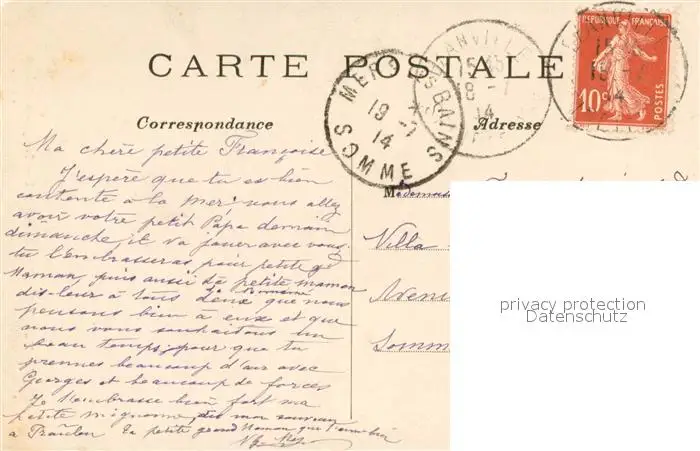 CARTE POSTALE
Correspondance
Adresse
RÉPUBLIQUE FRANÇAISE
10c
POSTES
MERS LES BAINS
19-7
14
SOMME
Ma chère petite Françoise
J'espère que tu es bien
contente à la mer, vous allez
avoir votre petit Papa demain
dimanche, il va jouer avec vous,
tu l'embrasseras pour petite
Maman, puis aussi petite maman
dis-leur à tous deux que nous
pensons bien à eux et que
nous vous souhaitons un
beau temps, pour que tu
prennes beaucoup d'air avec
Georges et beaucoup de forces
Je t'embrasse bien fort ma
petite mignonne, dis mon souvenir
à ta petite grand Maman que t'aime bien
Mademois
Villa
Avenu
Somm
privacy protection
Datenschutz